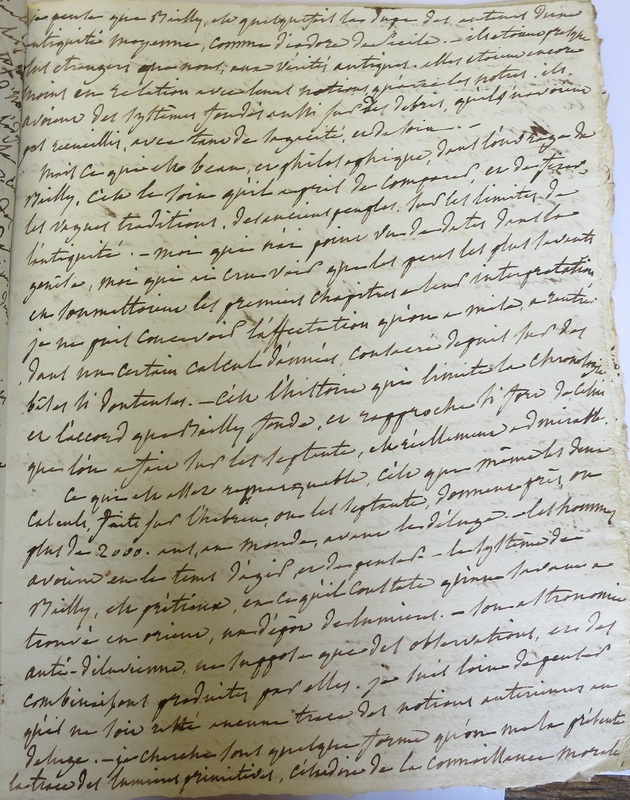 je pense que Bailly, est quelquefois la dupe des auteurs d'une
antiquité moyenne, comme diodore de Sicile. - ils étoient presque
plus étrangers que nous, aux vérités antiques. elles étoient encore
moins en relation avec leurs notions, qu'avec les notres. ils
avoient des systêmes fondés aussi sur des debris, qu'ils n'avoient
pas recueillis, avec tant de sagacité, et de soin. -
Mais ce qui est beau, et philosophique, dans l'ouvrage de
Bailly, c'est le soin qu'il a pris de comparer, et de
les vagues traditions, des anciens peuples, sur les limites, de
l'antiquité. - moi qui n'ai point vu de dates dans la
genese, moi qui ai cru voir que les peres les plus savants
en soumettoient les premiers chapitres a leur interpretation
je ne puis concevoir l'affectation qu'on a mise, a
dans un certain calcul d'années, consacré depuis sur des
bases si douteuses. - c'est l'histoire qui limite la chronologie
et l'accord que Bailly fonde, et rapproche si fort de celui
que l'on a fait sur les septante, est réellement admirable.
Ce qui est assez remarquable, c'est que même les deux
calculs, faits sur l'hebreu, ou les septante, donnent près, ou
plus de 2000. ans, au monde, avant le déluge - les hommes
avoient eu le tems d'agir, et de penser - le systême de
Bailly, est prétieux, en ce qu'il constate qu'une
trouvé en orient, un dépôt de lumieres. - son astronomie
anté-diluvienne, ne suppose que des observations, et des
combinaisons produites par elles. je suis loin de penser
qu'il ne soit resté aucune trace des notions anterieures au
deluge. - je cherche sous quelque forme qu'on me la présente
la trace des lumieres primitives, c'est à dire de la connoissance morale